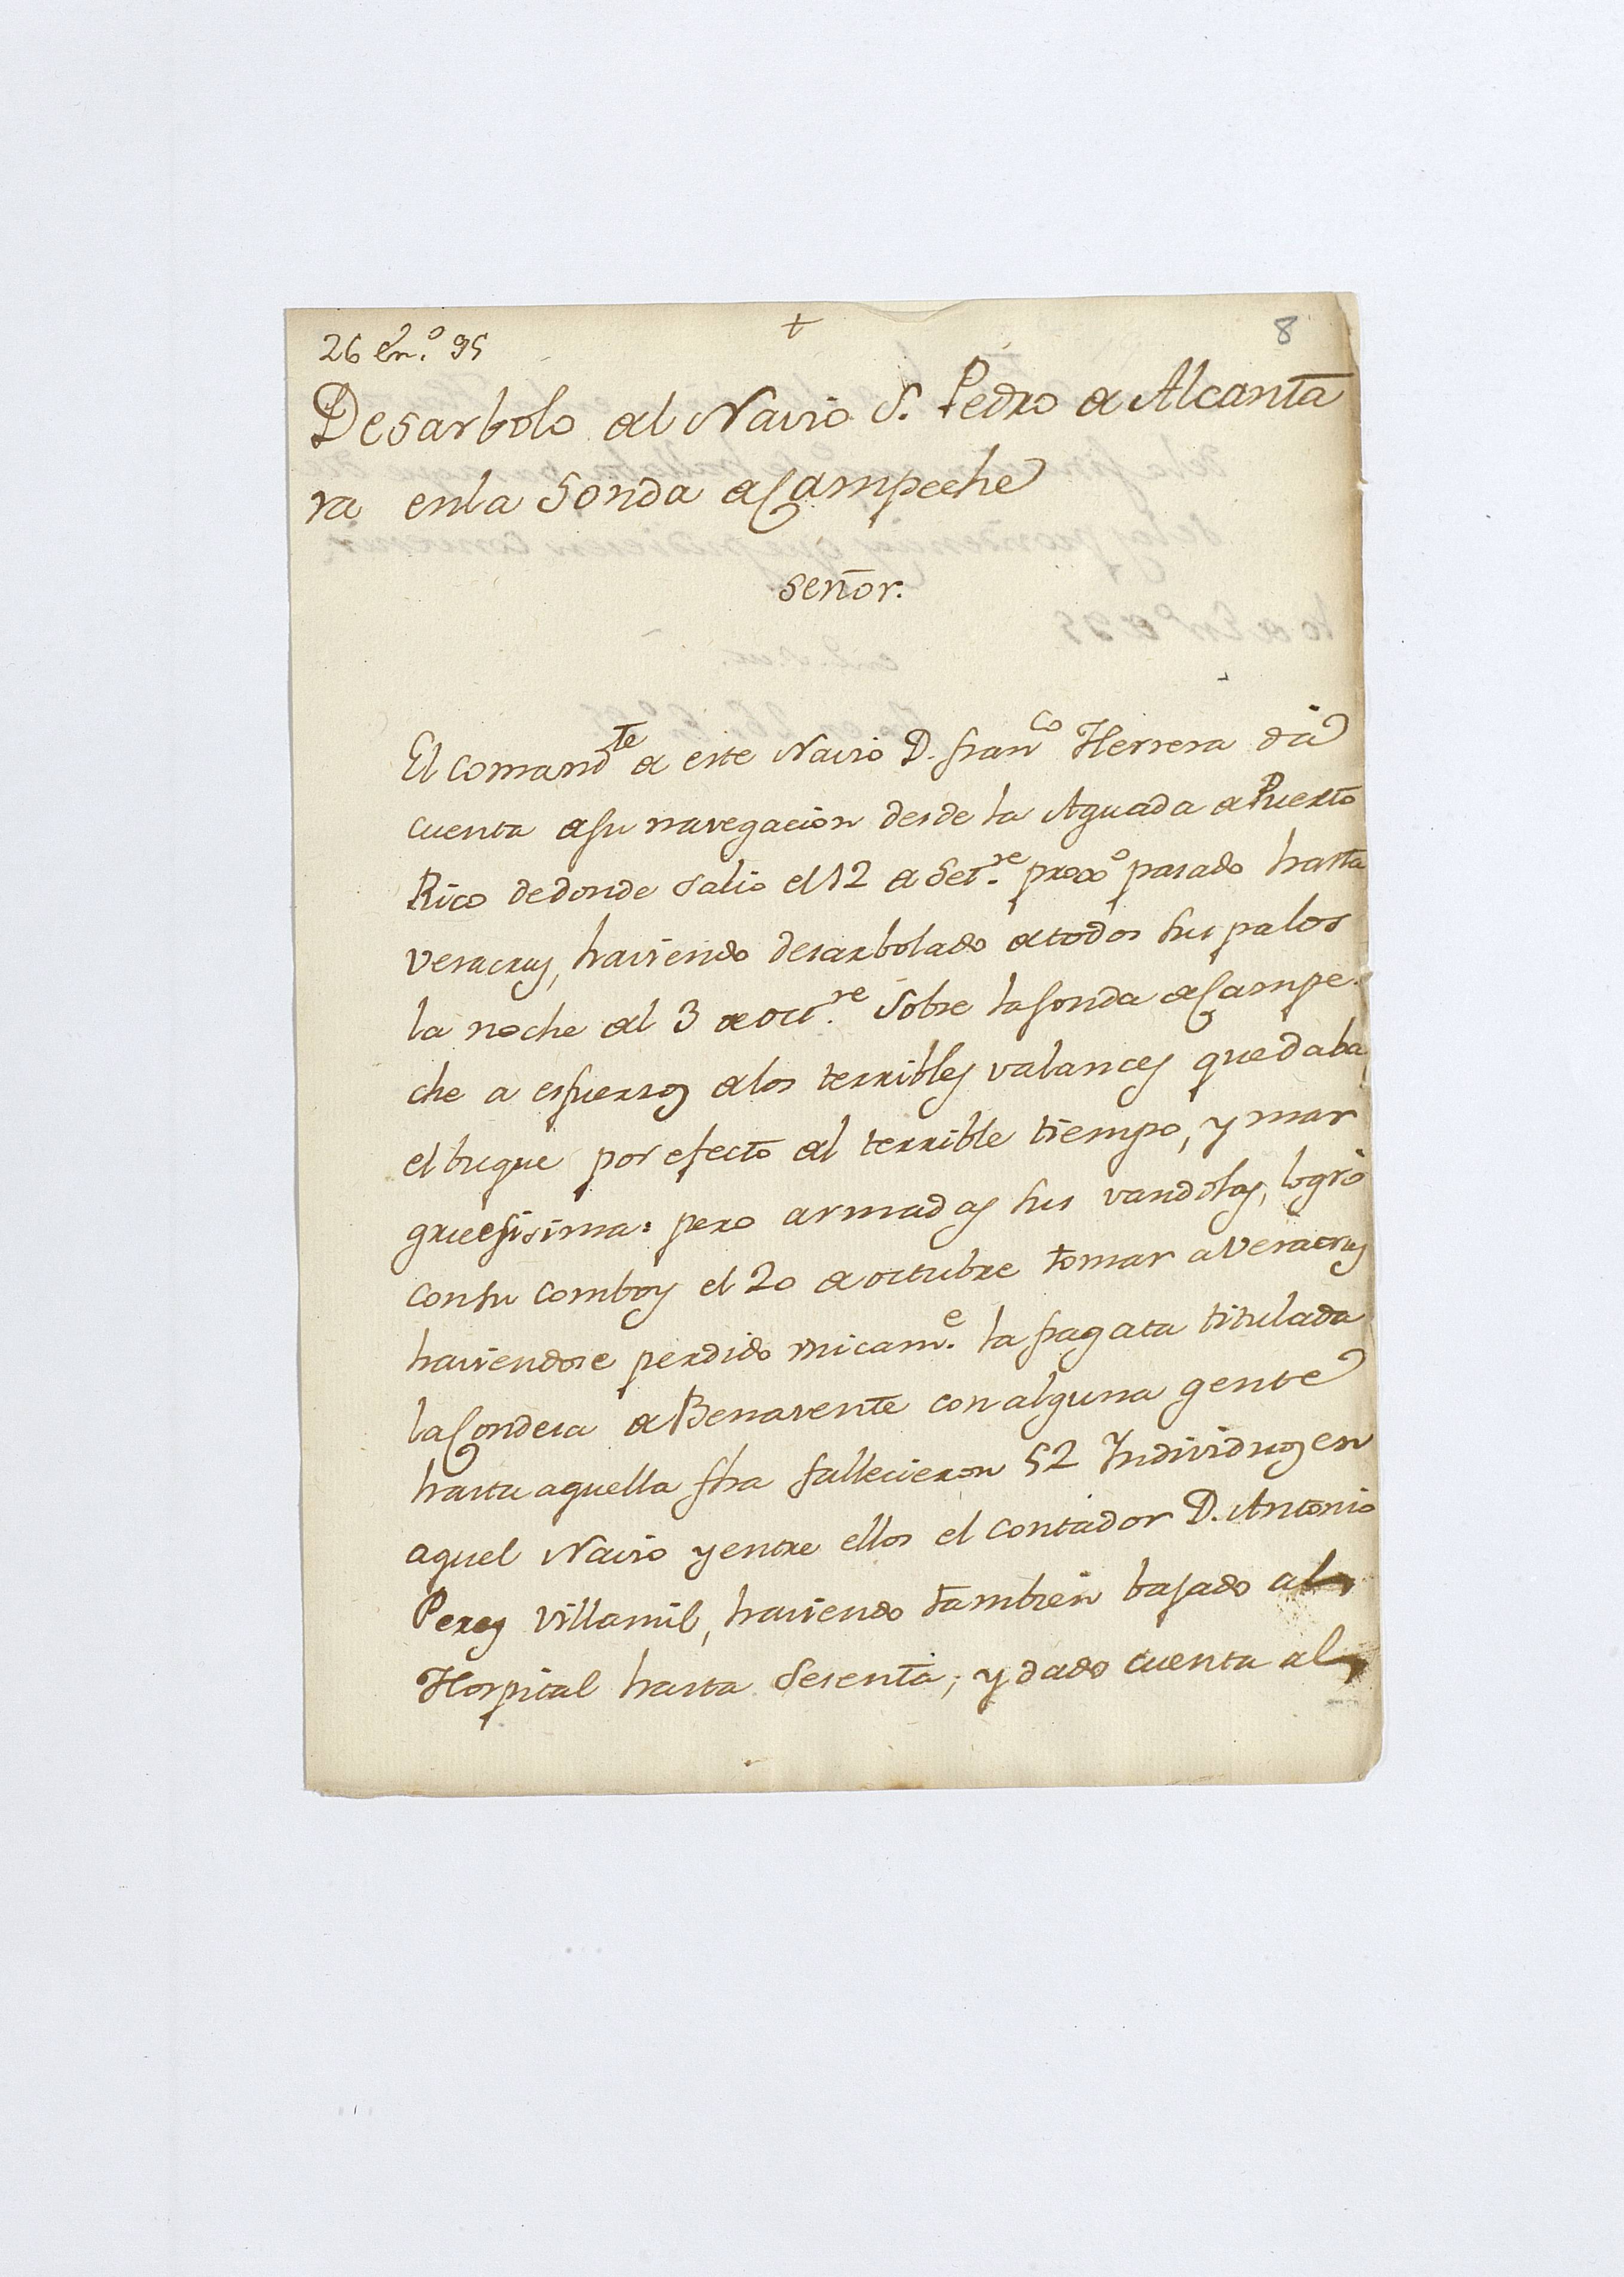 8
26 En.º 95
+
Desarbolo del Navio S. Pedro de Alcanta
ra enla Sonda de Campeche
Señor.
El Comand.te de este Navio D. Fran.co Herrera dá
cuenta de su navegacion desde la Aguada de Puerto
Rico dedonde salio el 12 de Set.re proxº pasado hasta
Veracruz, haviendo desarbolado detodos sus palos
la noche del 3 de Oct.re sobre la sonda de Campe-
che a esfuerzos delos terribles valances que daba
el buque por efecto del terrible tiempo, y mar
gruesisima: pero armadas sus vandolas, logró
consu comboy el 20 de octubre tomar a Veracruz
haviendose perdido unicam.e la fragata titulada
la Condesa de Benavente con alguna gente
hasta aquella fha fallecieron 52 Individuos en
aquel Navio y entre ellos el Contador D. Antonio
Perez Villamil, haviendo tambien bajado al
Hospital hasta sesenta; y dado cuenta al